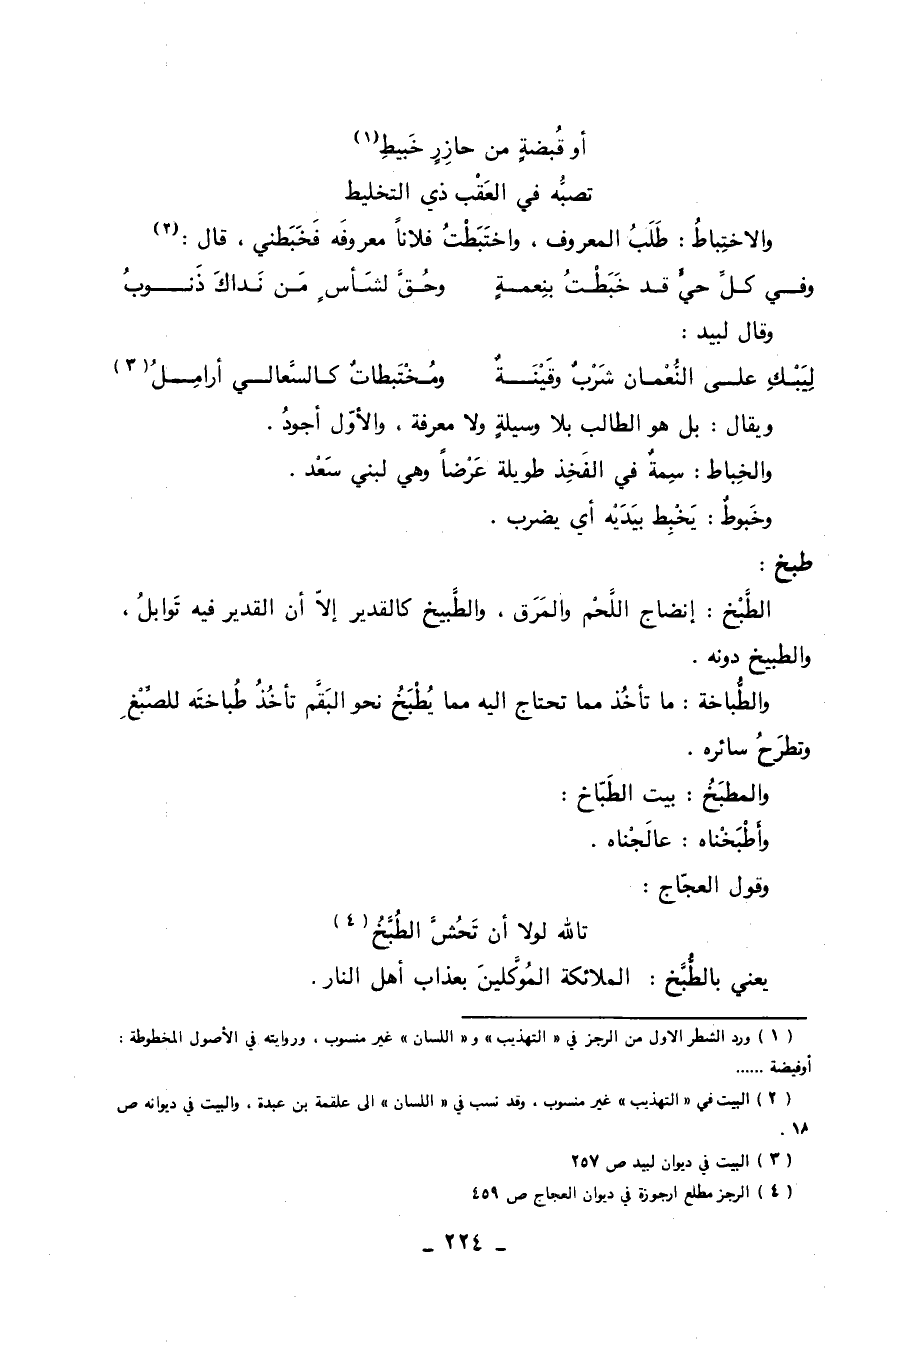 أو قُبضةٍ من حازِرٍ خَبيطِ(١)
تصبُّه في العَقْب ذي التخليط
والاختِباطُ : طَلَبُ المعروف ، واختَبَطْتُ فلاناً معروفَه فَخَبَطني ، قال :(٢)
وفــي كــلِّ حيٍّ قــد خَبَطْــتُ بنِعمــةٍ وحُــقَّ لشَــأسٍ مَــن نَــداكَ ذَنــــوبُ
وقال لبيد :
لِيَبْــكِ علـــى النُّعْمــان شَرْبٌ وقَيْنَـــةٌ ومُــخْتَبطاتٌ كــالسَّعالــي أرامِــلُ(٣)
ويقال : بل هو الطالب بلا وسيلةٍ ولا معرفة ، والأوّل أجودُ .
والخِباط : سِمةٌ في الفَخِذ طويلة عَرْضاً وهي لبني سَعْد .
وخَبوطٌ : يَخْبِط بيَدَيْه أي يضرب .
طبخ :
الطَّبْخ : إنضاج اللَّحْم والمَرَق ، والطَّبيخ كالقدير إلاّ أن القدير فيه تَوابلُ ،
والطبيخ دونه .
والطُّباخة : ما تأخُذ مما تحتاج اليه مما يُطْبَخُ نحو البَقَّم تأخُذُ طُباختَه للصِّبْغِ
وتطرَحُ سائره .
والمطبَخُ : بيت الطَبّاخ :
وأَطْبَخْناه : عالَجْناه .
وقول العجّاج :
تالله لولا أن تَحُشَّ الطُبَّخُ(٤)
يعني بالطُّبَّخ : الملائكة المُوَّكلينَ بعذاب أهل النار .
(١) ورد الشطر الاول من الرجز في « التهذيب » و« اللسان » غير منسوب ، وروايته في الأصول المخطوطة :
أوفيضة ......
(٢) البيت في « التهذيب » غير منسوب ، وقد نسب في « اللسان » الى علقمة بن عبدة ، والبيت في ديوانه ص
١٨ .
(٣) البيت في ديوان لبيد ص ٢٥٧
(٤) الرجز مطلع ارجوزة في ديوان العجاج ص ٤٥٩
ـ ٢٢٤ ـ